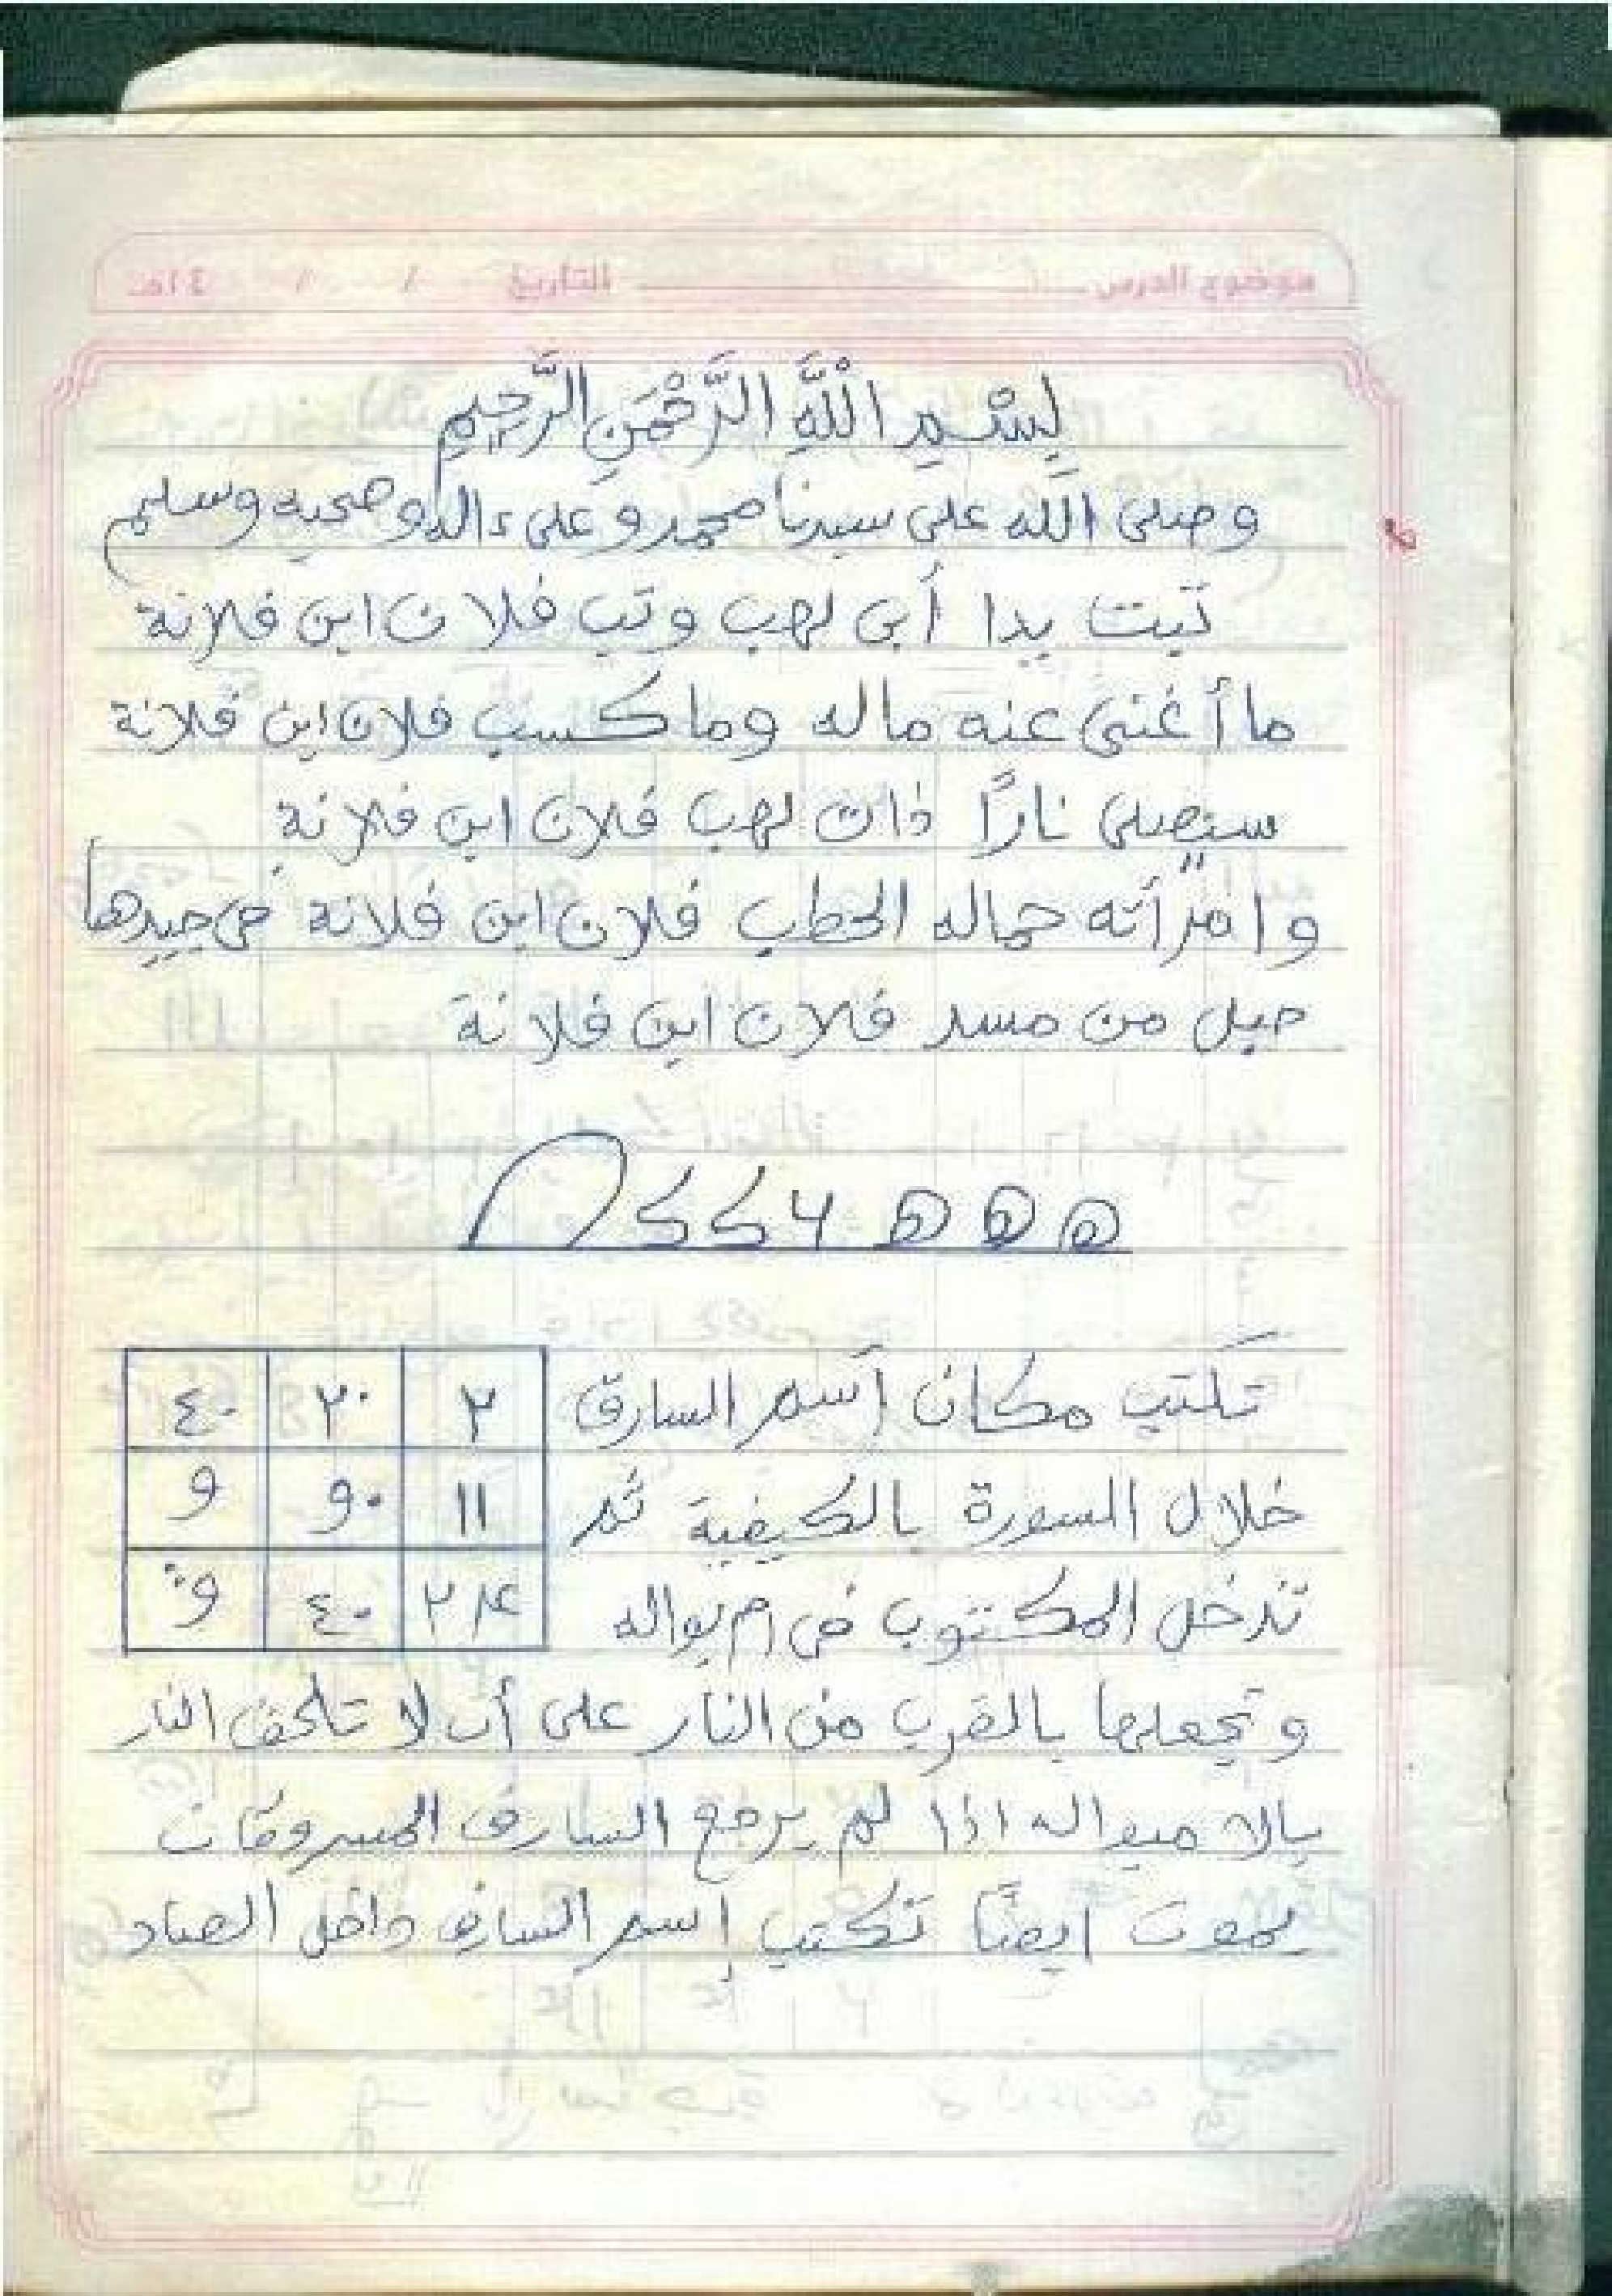 بِسْمِ اللَّهِ الرَّحْمَنِ الرَّحِيمِ
وصلى الله على سيدنا محمد وعلى ءاله وصحبه وسلم
تبت يدا أبى لهب وتب فلان ابن فلانة
ما أغنى عنه ماله وما كسب فلان ابن فلانة
سيصلى نارًا ذات لهب فلان ابن فلانة
وامرأته حماله الحطب فلان ابن فلانة فى جيدها
حبل من مسد فلان ابن فلانة
تكتب مكان إسم السارق
٢ ٢٠ ٤٠
خلال السورة بالكيفية ثم
١١ و٠ و
تدخل المكتوب فى ام بواله
٤٠
وتجعلها بالقرب من النار على أن لا تلحق النار
اذا لم يرجع السارق المسروقات
يموت ايضًا تكتب إسم السارق داخل الصاد